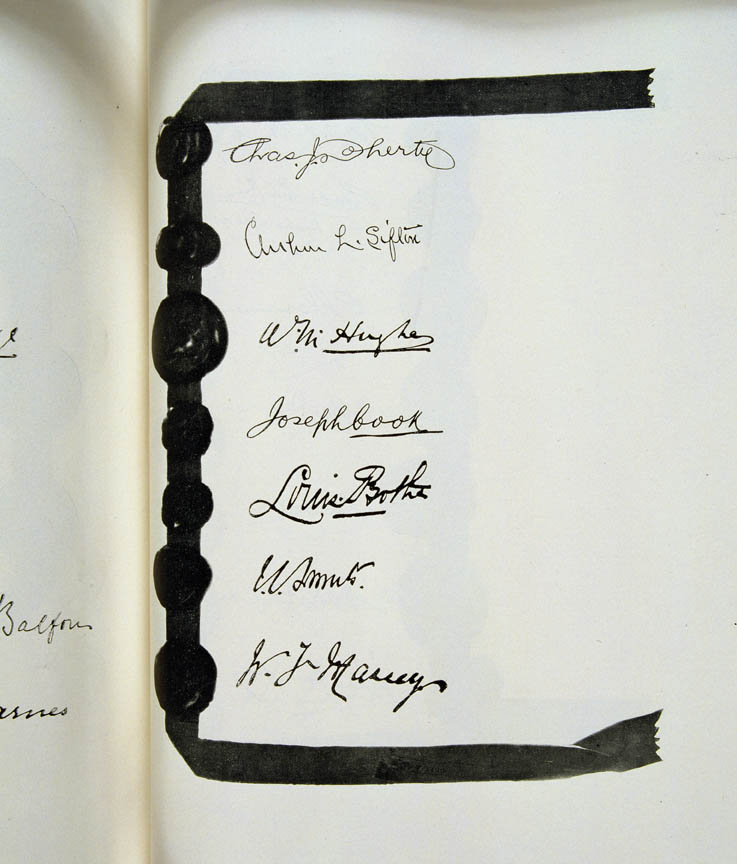 Balfour
arnes
Chas. J. Doherty
Arthur L. Sifton
W. M Hughes
Joseph Cook
Louis Botha
J. C. Smuts.
W. F. Massey